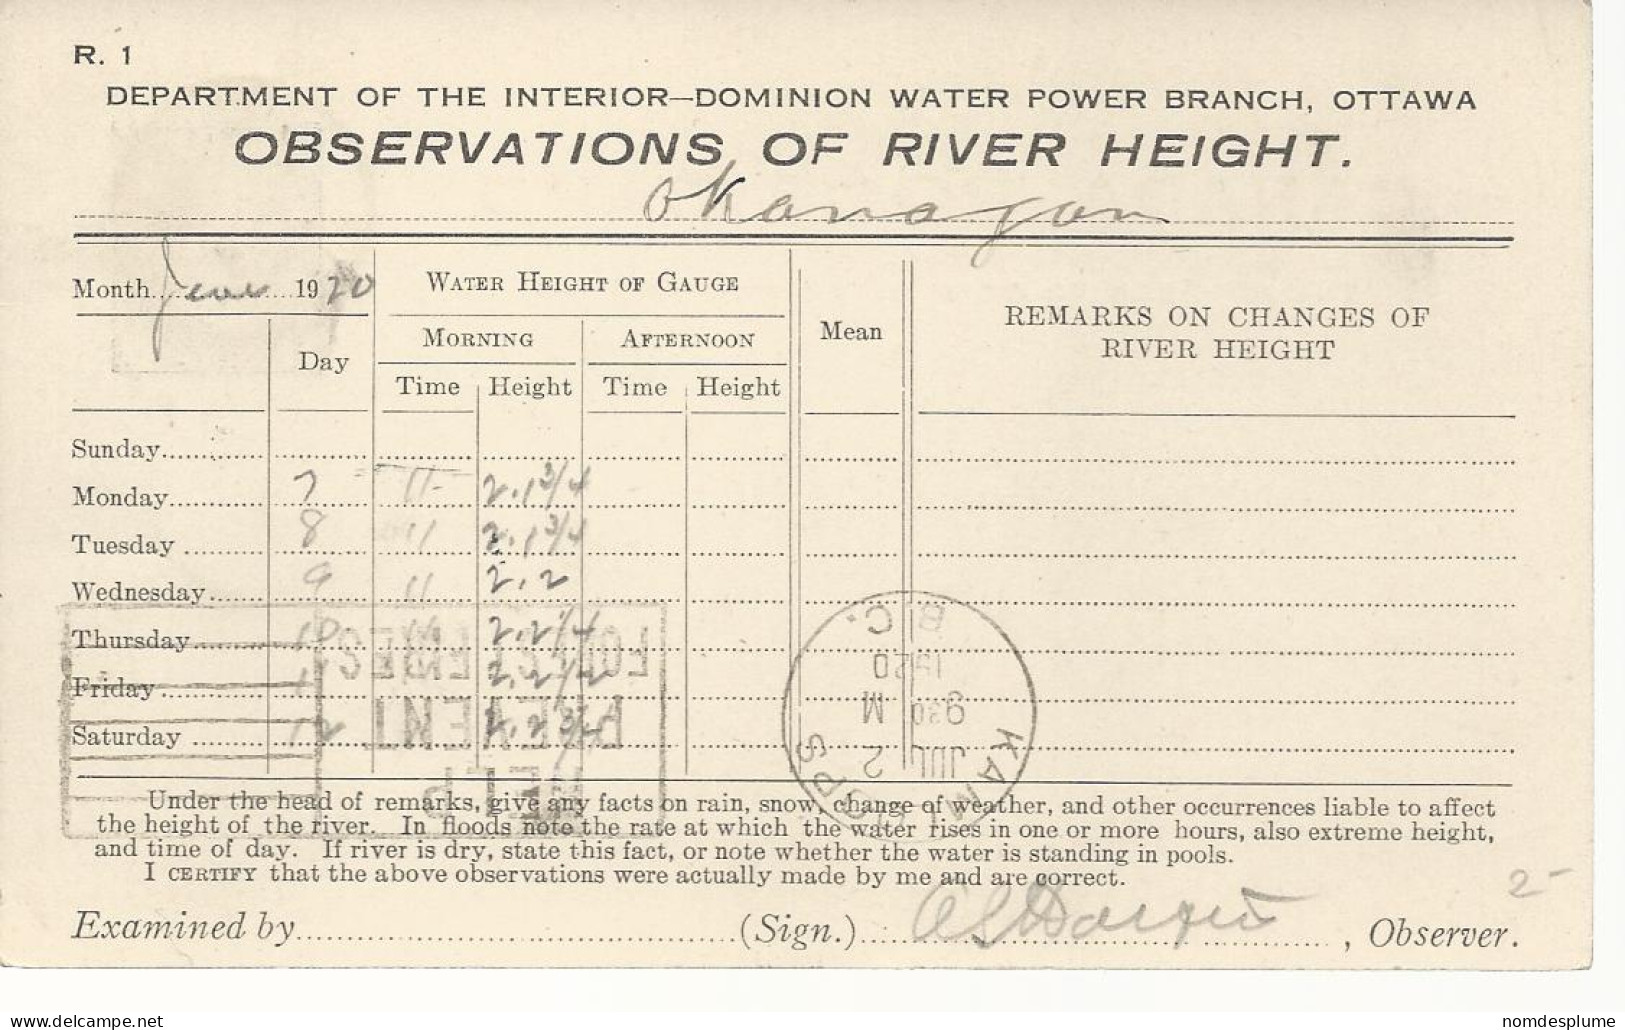 R. 1
DEPARTMENT OF THE INTERIOR—DOMINION WATER POWER BRANCH, OTTAWA
OBSERVATIONS OF RIVER HEIGHT.
Okanagan
Month June 1920
WATER HEIGHT OF GAUGE
Mean
REMARKS ON CHANGES OF
RIVER HEIGHT
Day
MORNING AFTERNOON
Time Height Time Height
Sunday
Monday 7 11 2.1 3/4
Tuesday 8 11 2.1 3/4
Wednesday 9 11 2.2
Thursday 10 11 2.2 1/4
Friday 11 2.2 1/2
Saturday 12 2.2 3/4
KAMLOOPS
B.C.
JUL 2
930 M
1920
Under the head of remarks, give any facts on rain, snow, change of weather, and other occurrences liable to affect
the height of the river. In floods note the rate at which the water rises in one or more hours, also extreme height,
and time of day. If river is dry, state this fact, or note whether the water is standing in pools.
I CERTIFY that the above observations were actually made by me and are correct.
2-
Examined by (Sign.) , Observer.
www.delcampe.net
nomdesplume